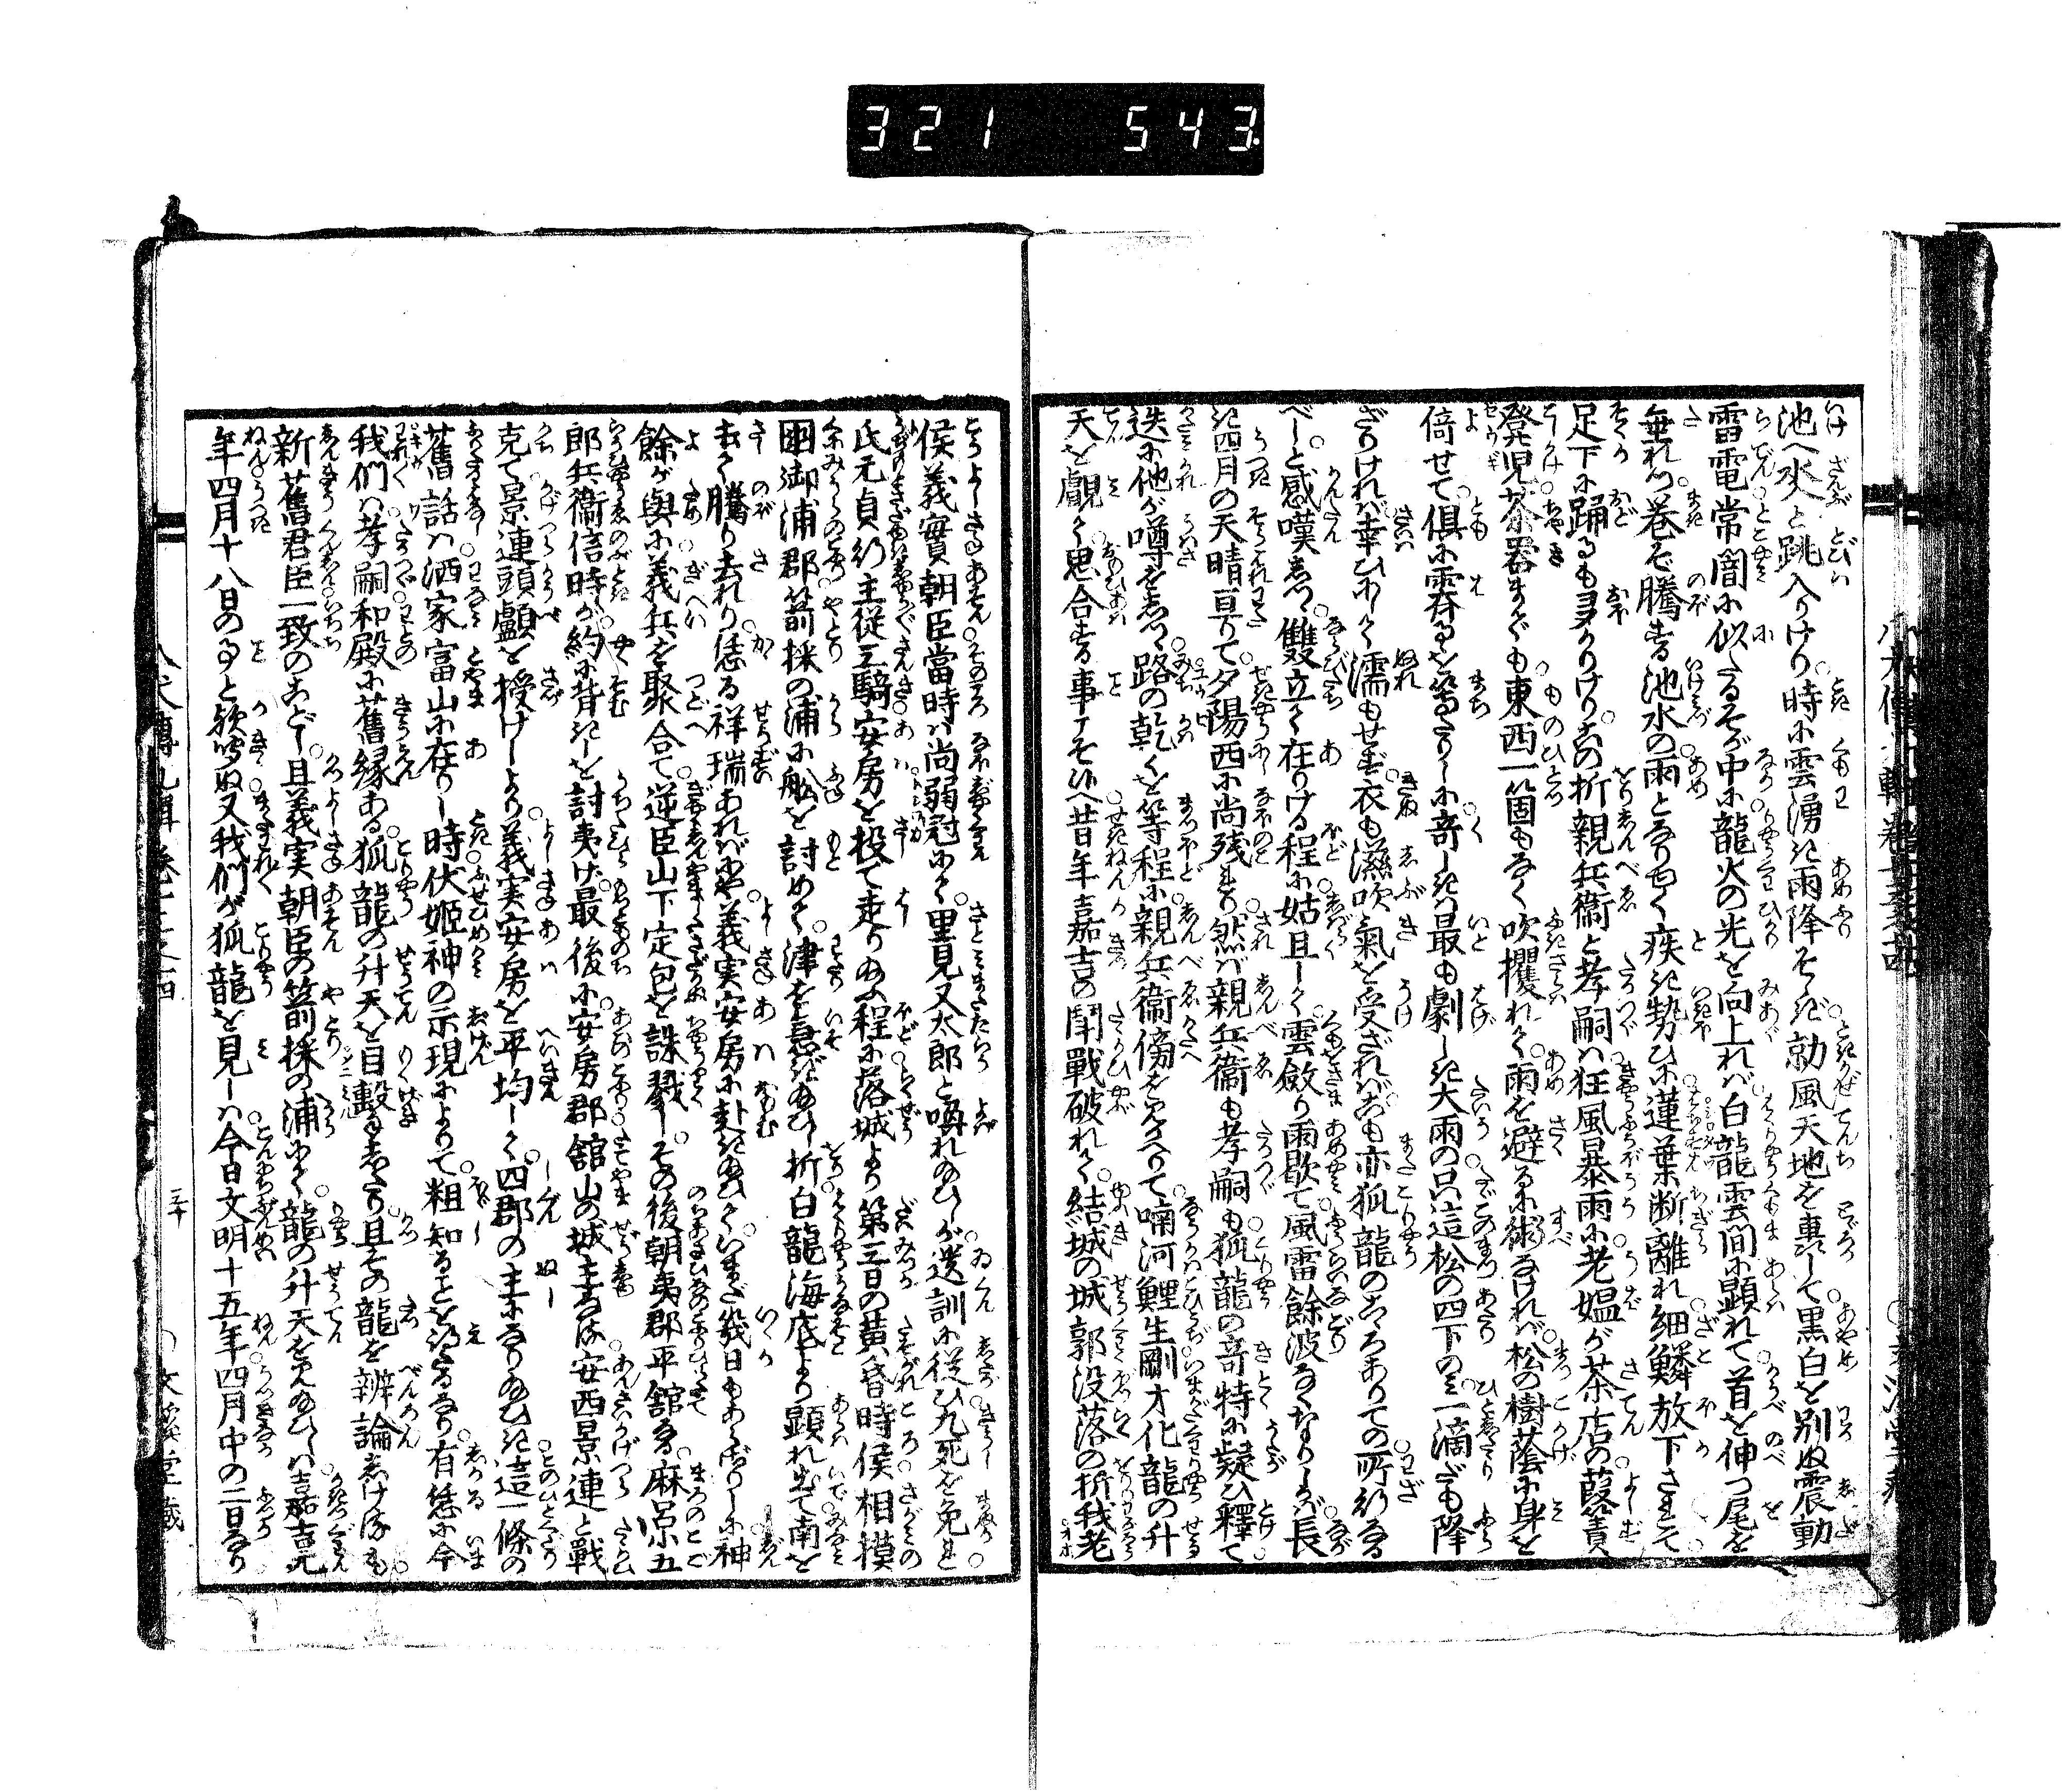 321 543
池へ水と跳入りけり時に雲涌き雨降そゝぎ勁風天地を裏して黒白を別ぬ震動
雷電常闇に似たるその中に龍火の光を向上れバ白龍雲間に顕れて首を伸つ尾を
垂れつ巻で騰する池水の雨となりゆく疾き勢ひに蓮葉断離れ細鱗放下さまで
足下に踊るも多かりけりこの折親兵衞と孝嗣ハ狂風暴雨に老媼が茶店の葭簀
登児茶器すらも東西一箇もなく吹攫れて雨を避るに術なけれバ松の樹蔭に身を
倚せて倶に霽るゝを等たりしに奇しきハ最も劇しき大雨の只這松の四下のミ一滴だも降
ざりけれバ幸ひにして濡もせず衣も濕吹氣を受ざれバこも亦狐龍のこゝろありての所行なる
べしと感嘆しつゝ雙立て在りける程に姑且して雲斂り雨歇て風雷餘波なくなりしかバ長
き四月の天晴亘りて夕陽西に尚残れり然バ親兵衞も孝嗣も狐龍の奇特に疑ひ釋て
迭に他が噂をしつゝ路の乾くを等程に親兵衞傍を見かへりて喃河鯉生剛才化龍の升
天を覩て思合する事こそ候へ昔年嘉吉の鬪戰破れて結城の城郭没落の折我老
侯義實朝臣當時ハ尚弱冠にて里見又太郎と喚れ給ひしが遺訓に従ひ九死を免れ
氏元貞行主従三騎安房を投て走り給ふ程に落城より第三日の黄昏時侯相摸
国御浦郡箭採の浦に舩を討めて津を急ぎ給ひし折白龍海底より顕れ出て南を
去て騰り去れり恁る祥瑞あれバにや義実安房に赴き給ひていまだ幾日もあらざりしに神
餘が與に義兵を聚合て逆臣山下定包を誅戮しその後朝夷郡平舘なる麻呂五
郎兵衞信時が約に背きしを討夷げ最後に安房郡舘山の城主なる安西景連と戰
克て景連頭顱を授けしより義実安房を平均して四郡の主になり給ひき這一條の
舊話ハ洒家富山に在りし時伏姫神の示現によりて粗知ることを得たるなり有恁に今
我們ハ孝嗣和殿に舊縁ある狐龍の升天を目撃しぬるあり且その龍を辨論しけるも
新舊君臣一致のことし且義実朝臣の箭採の浦にて龍の升天を見給ひしハ嘉吉元
年四月十八日の事と欤聞ぬ又我們が狐龍を見しハ今日文明十五年四月中の二日なり
八犬傳九輯 巻十三之四
三十
文溪堂藏